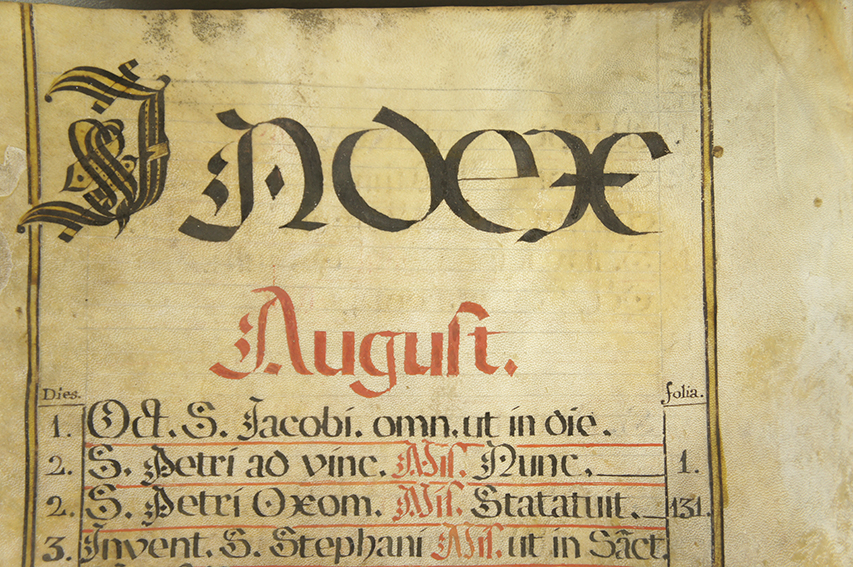 Index
August.
Dies. folia.
1. Oct. S. Jacobi. omn. ut in die.
2. S. Petri ad vinc. Mis. Nunc. 1.
2. S. Petri Oxom. Mis. Statatuit. 131.
3. Invent. S. Stephani Mis. ut in Sãct.